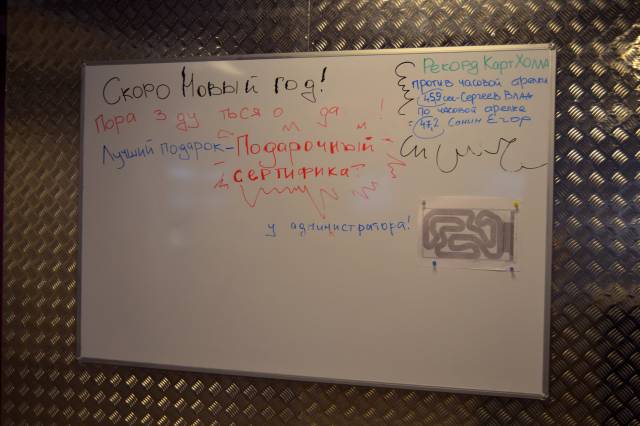 Скоро Новый год!
Пора з ду ться о да !
Лучший подарок - Подарочный
сертификат
у администратора!
Рекорд КартХолла
против часовой стрелки
45,9 сек - Сергеев Влад
по часовой стрелке
47,2 Санин Егор